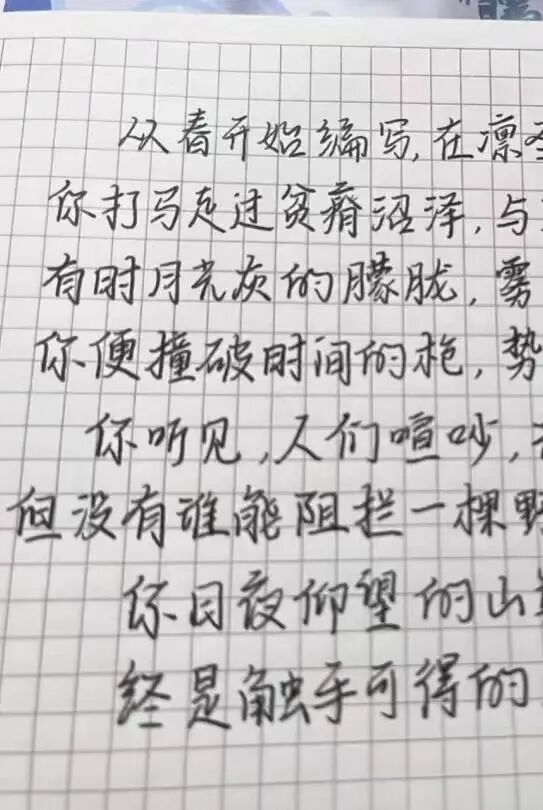 从春开始编写,在凛
你打马走过贫瘠沼泽,与
有时月光灰的朦胧,雾
你便撞破时间的枪,势
你听见,人们喧吵,
但没有谁能阻拦一棵野
你日夜仰望的山
终是触手可得的